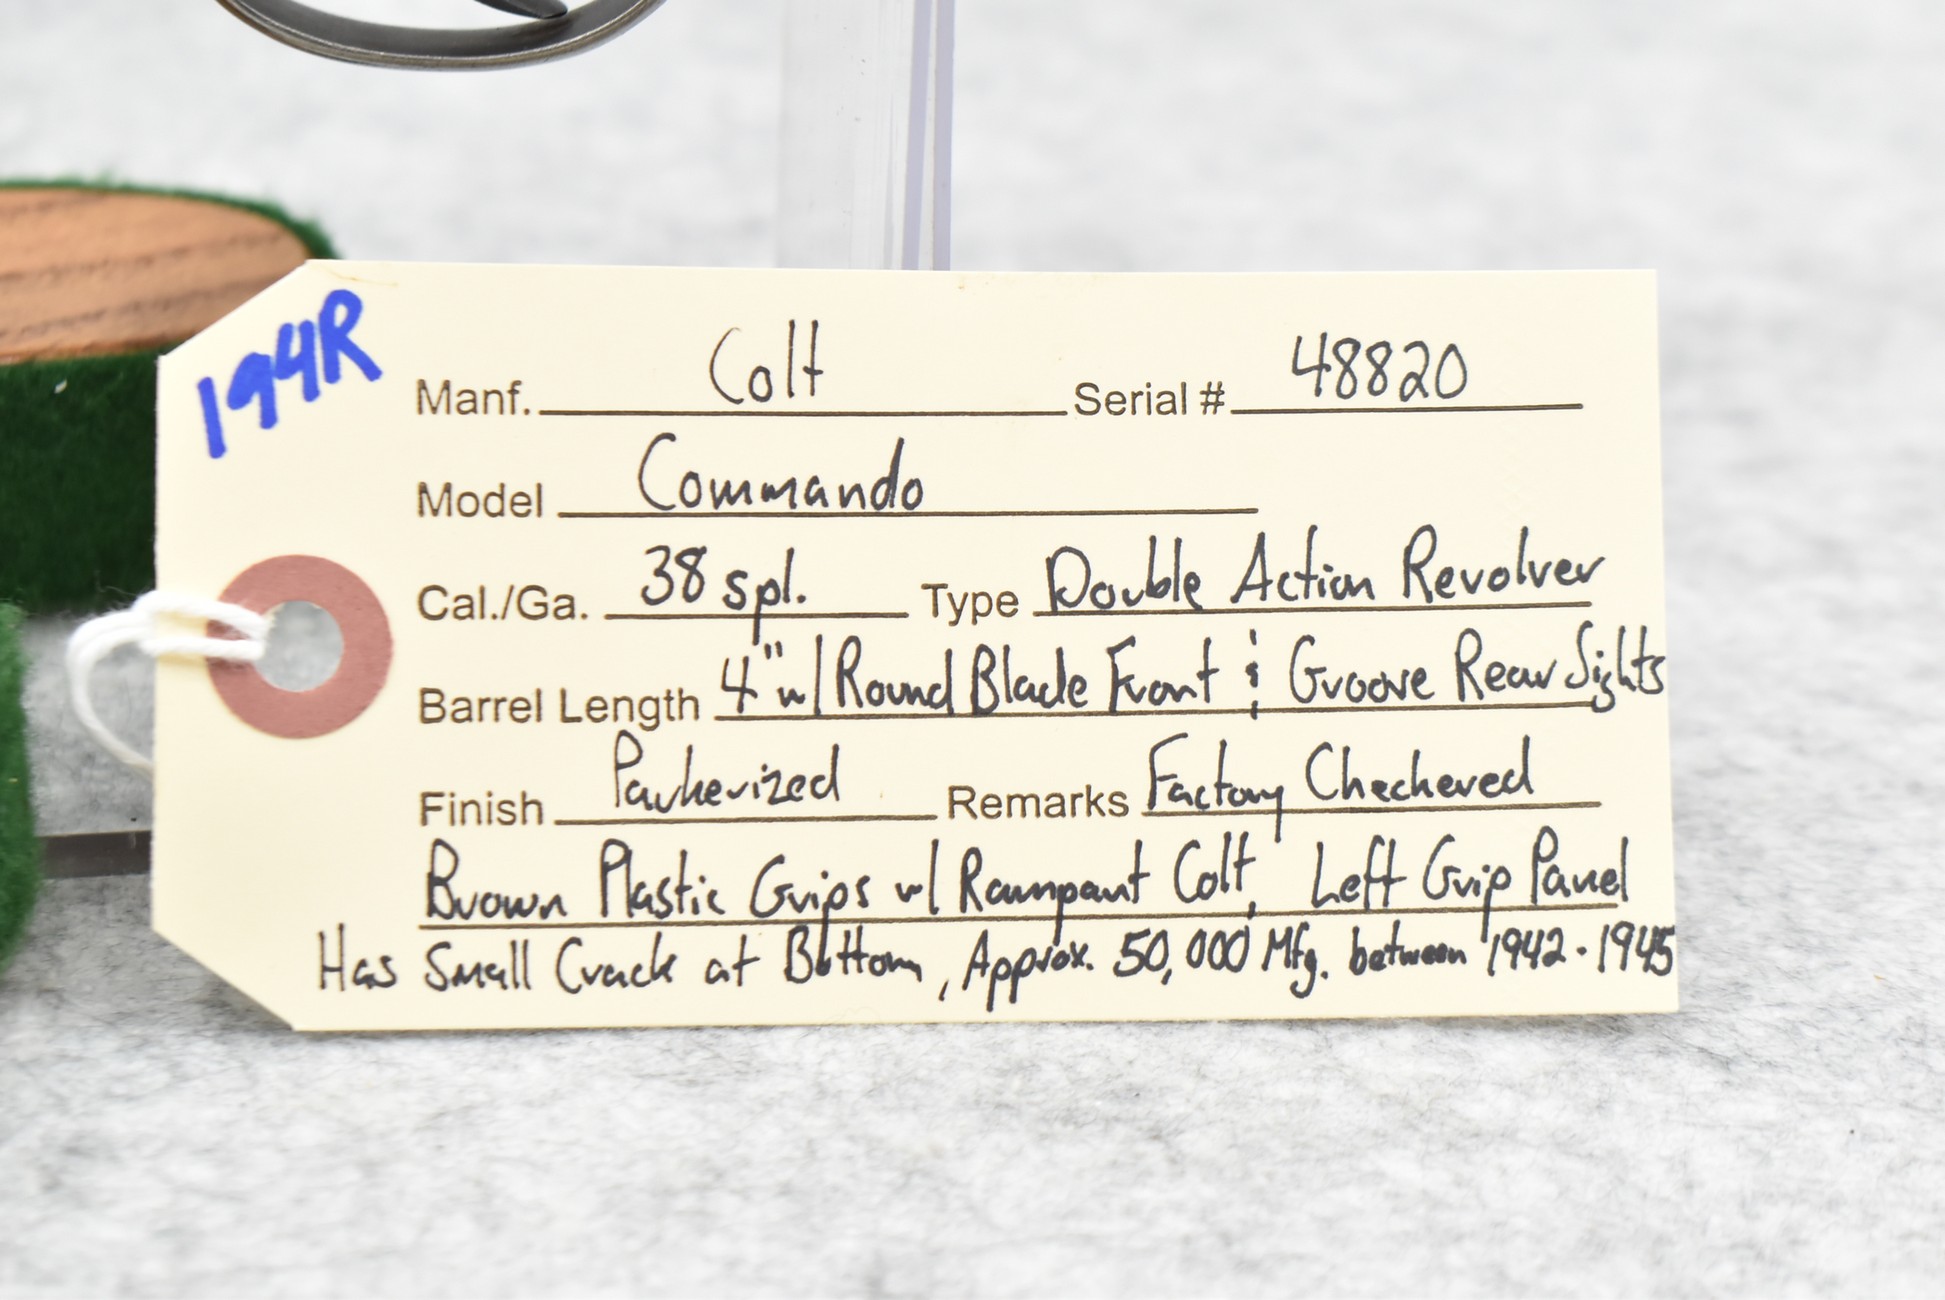 194R
Manf. Colt Serial # 48820
Model Commando
Cal./Ga. 38 spl. Type Double Action Revolver
Barrel Length 4" w/ Round Blade Front & Groove Rear Sights
Finish Parkerized Remarks Factory Checkered
Brown Plastic Grips w/ Rampant Colt, Left Grip Panel
Has Small Crack at Bottom, Approx. 50,000 Mfg. between 1942-1945